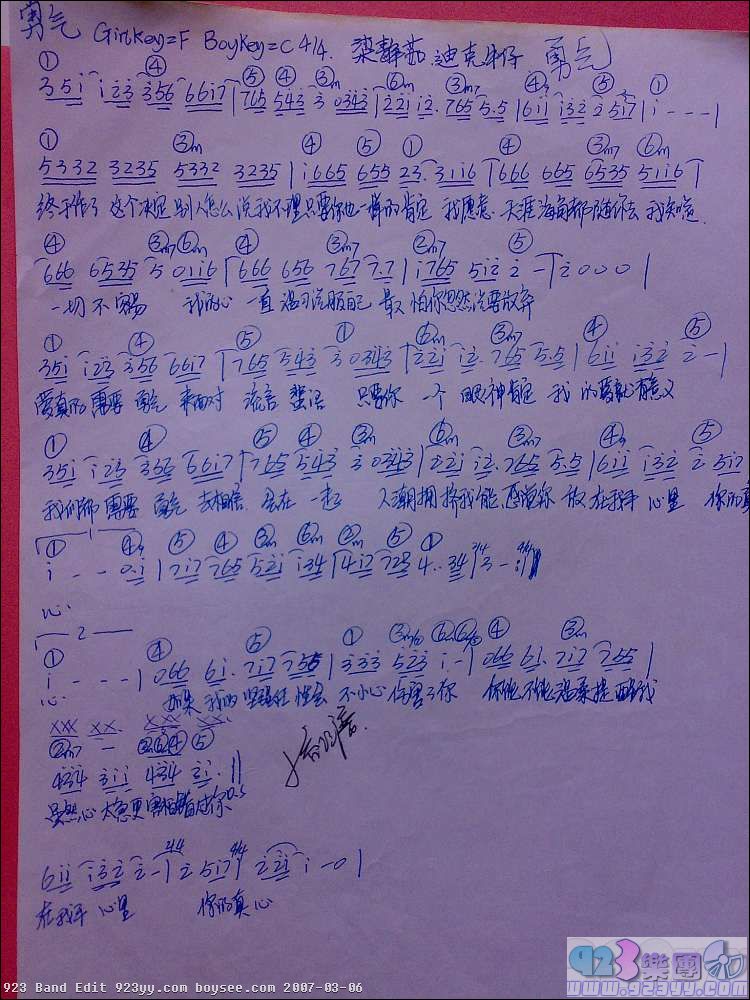 勇气 Girlkey=F Boykey=C 4/4. 梁静茹 迪克牛仔 勇气
① ④ ⑤ ④ ③m ⑥m ③m7 ④ ⑤ ①
351 123 356 6617 | 765 543 3 0343 | 221 12. 765 5.5 | 611 132 2 517 | 1 - - - |
① ③m ④ ⑤ ① ④ ③m7 ⑥m
5332 3235 5332 3235 | 1665 655 23. 3116 | 666 665 6535 5116 |
终于作了 这个决定 别人怎么说我不理 只要你也一样的肯定 我愿意 天涯海角都随你去 我知道
④ ③m7 ⑥m ④ ③m7 ②m7 ⑤
666 6535 5 0116 | 666 656 767 7.7 | 1765 512 2 - | 2 0 0 0 |
一切不容易 我的心 一直温习说服自己 最怕你忽然说要放弃
① ④ ⑤ ① ⑥m ③m7 ④ ⑤
351 123 356 6617 | 765 543 3 0343 | 221 12. 765 5.5 | 611 132 2 - |
爱真的 需要 勇气 来面对 流言 蜚语 只要你 一个 眼神肯定 我的爱就有意义
① ④ ⑤ ④ ③m ⑥m ③m7 ④ ⑤
351 123 356 6617 | 765 543 3 0343 | 221 12. 765 5.5 | 611 132 2 517
我们都 需要 勇气 去相信 会在 一起 人潮拥挤我能感觉你 放在我手 心里 你的真
① ④ ⑤ ④ ③m ⑥m ②m ⑤ ①
1 - - 0.1 | 717 765 521 134 | 417 725 4.. 34 | 3 - :||
心
2
① ④ ⑤ ① ③m ⑥m ④ ③m
1 - - - | 066 61. 717 755 | 333 523 1 - | 066 61. 717 765 |
心 如果 我的 坚强任性会 不小心 伤害了你 你能不能温柔提醒我
xxx xx. xxx xx
②m7 - ④ ⑤
434 311 434 21. ||
虽然心 太急更害怕错过你
611 132 2 - | 2 517 | 2 21 1 - 0 |
在我手 心里 你的真 心
923 Band Edit 923yy.com boysee.com 2007-03-06
923樂團
www.923yy.com